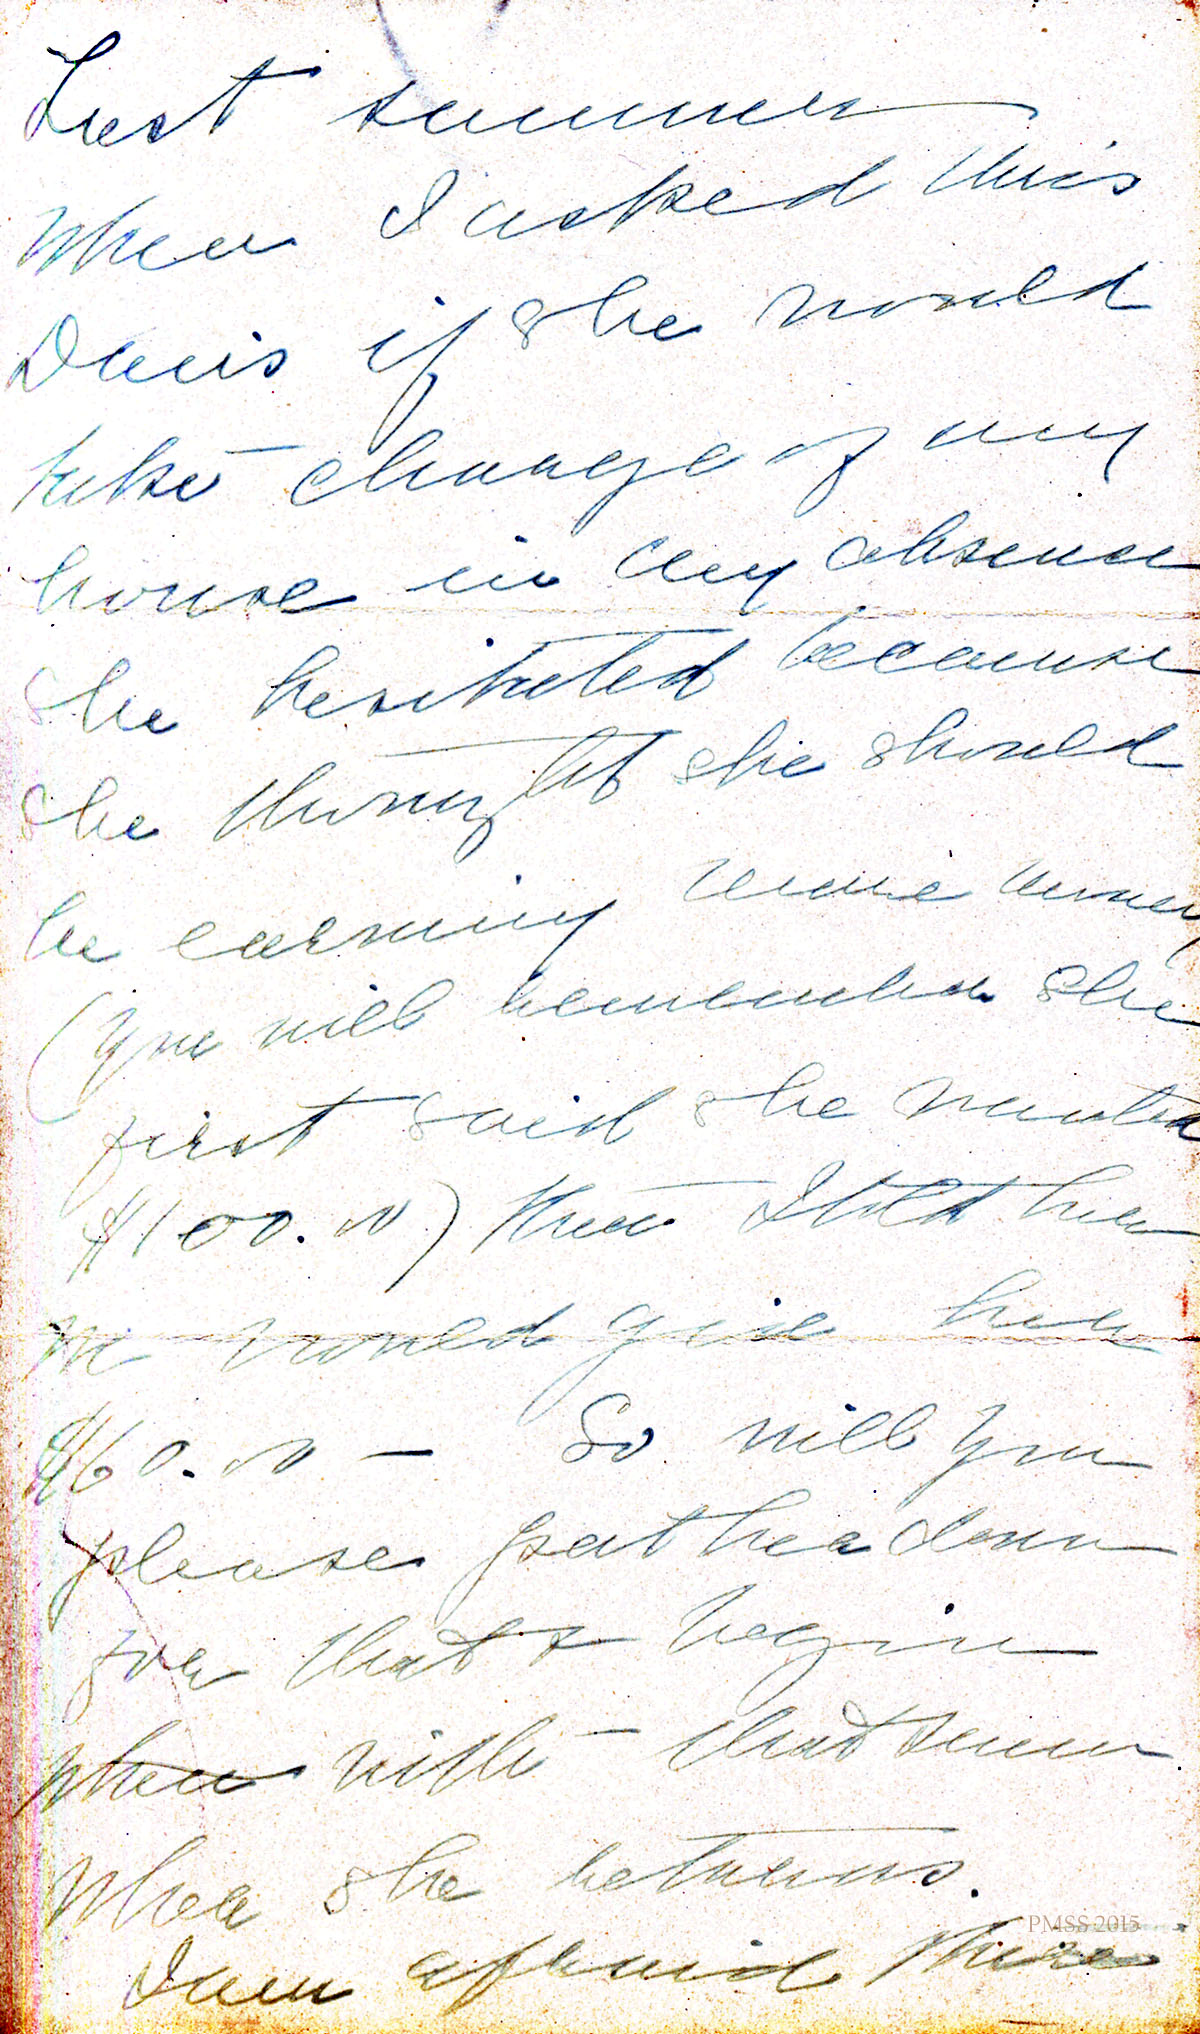 Last summer
when I asked Miss
Davis if she would
take charge of my
house in my absence
she hesitated because
she thought she should
be earning more money
(you will remember she
first said she wanted
$100.00) then I told her
we would give her
$60.00 — So will you
please put her down
for that & begin
when with that sum
when she returns.
I am afraid
PMSS 2015